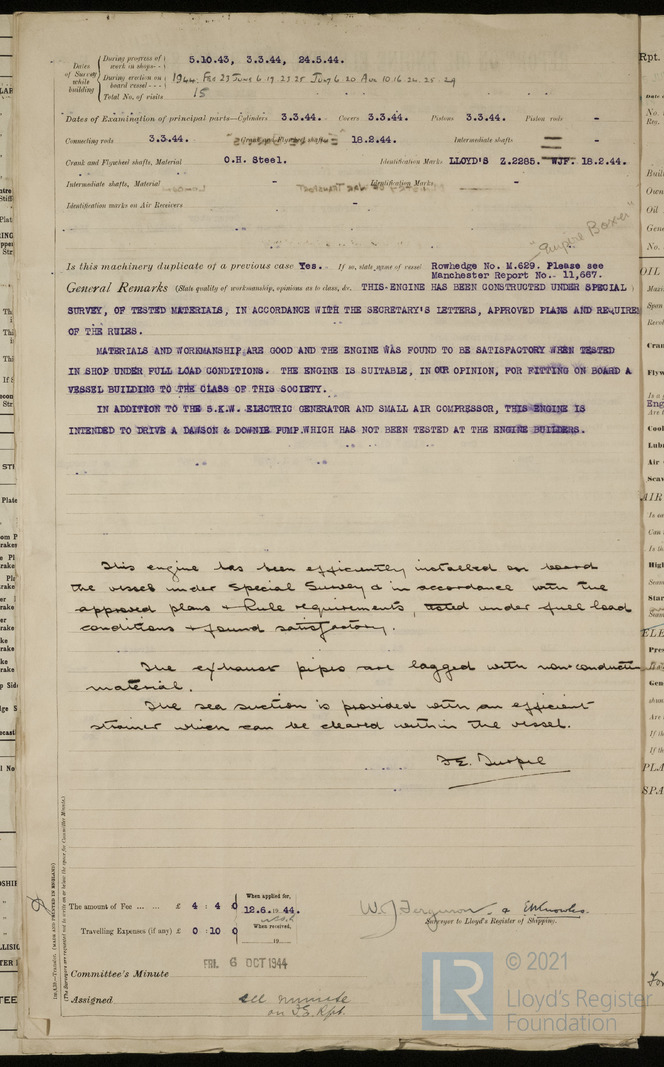 Dates of Survey while building
During progress of work in shops - - 5.10.43, 3.3.44, 24.5.44.
During erection on board vessel - - - 1944: Feb 23 June 6 19 23 25 July 6 20 Aug 10 16 22 25 29
Total No. of visits 15
Dates of Examination of principal parts—Cylinders 3.3.44. Covers 3.3.44. Pistons 3.3.44. Piston rods -
Connecting rods 3.3.44. 18.2.44. Intermediate shafts
Crank and Flywheel shafts, Material O.H. Steel. Identification Marks LLOYD'S Z.2285. WJF. 18.2.44.
Intermediate shafts, Material - Identification Marks -
Identification marks on Air Receivers -
"Empire Boxer"
Is this machinery duplicate of a previous case Yes. If so, state name of vessel Rowhedge No. M.629. Please see
Manchester Report No. 11,667.
General Remarks (State quality of workmanship, opinions as to class, &c. THIS ENGINE HAS BEEN CONSTRUCTED UNDER SPECIAL
SURVEY, OF TESTED MATERIALS, IN ACCORDANCE WITH THE SECRETARY'S LETTERS, APPROVED PLANS AND REQUIREM
OF THE RULES.
MATERIALS AND WORKMANSHIP ARE GOOD AND THE ENGINE WAS FOUND TO BE SATISFACTORY WHEN TESTED
IN SHOP UNDER FULL LOAD CONDITIONS. THE ENGINE IS SUITABLE, IN OUR OPINION, FOR FITTING ON BOARD A
VESSEL BUILDING TO THE CLASS OF THIS SOCIETY.
IN ADDITION TO THE 5.K.W. ELECTRIC GENERATOR AND SMALL AIR COMPRESSOR, THIS ENGINE IS
INTENDED TO DRIVE A DAWSON & DOWNIE PUMP WHICH HAS NOT BEEN TESTED AT THE ENGINE BUILDERS.
This engine has been efficiently installed on board
the vessel under Special Survey & in accordance with the
approved plans & Rule requirements, tested under full load
conditions & found satisfactory.
The exhaust pipes are lagged with non-conducting
material.
The sea suction is provided with an efficient
strainer which can be cleared within the vessel.
F.E. Turpel
The amount of Fee ... ... £ 4 : 4 : 0 When applied for, 12.6.1944.
Travelling Expenses (if any) £ 0 : 10 : 0 When received, 19
W. J. Ferguson & E.W. Knowles.
Surveyor to Lloyd's Register of Shipping.
Committee's Minute FRI. 6 OCT 1944
Assigned see minute
on F.E. Rpt.
© 2021
LR Lloyd's Register
Foundation